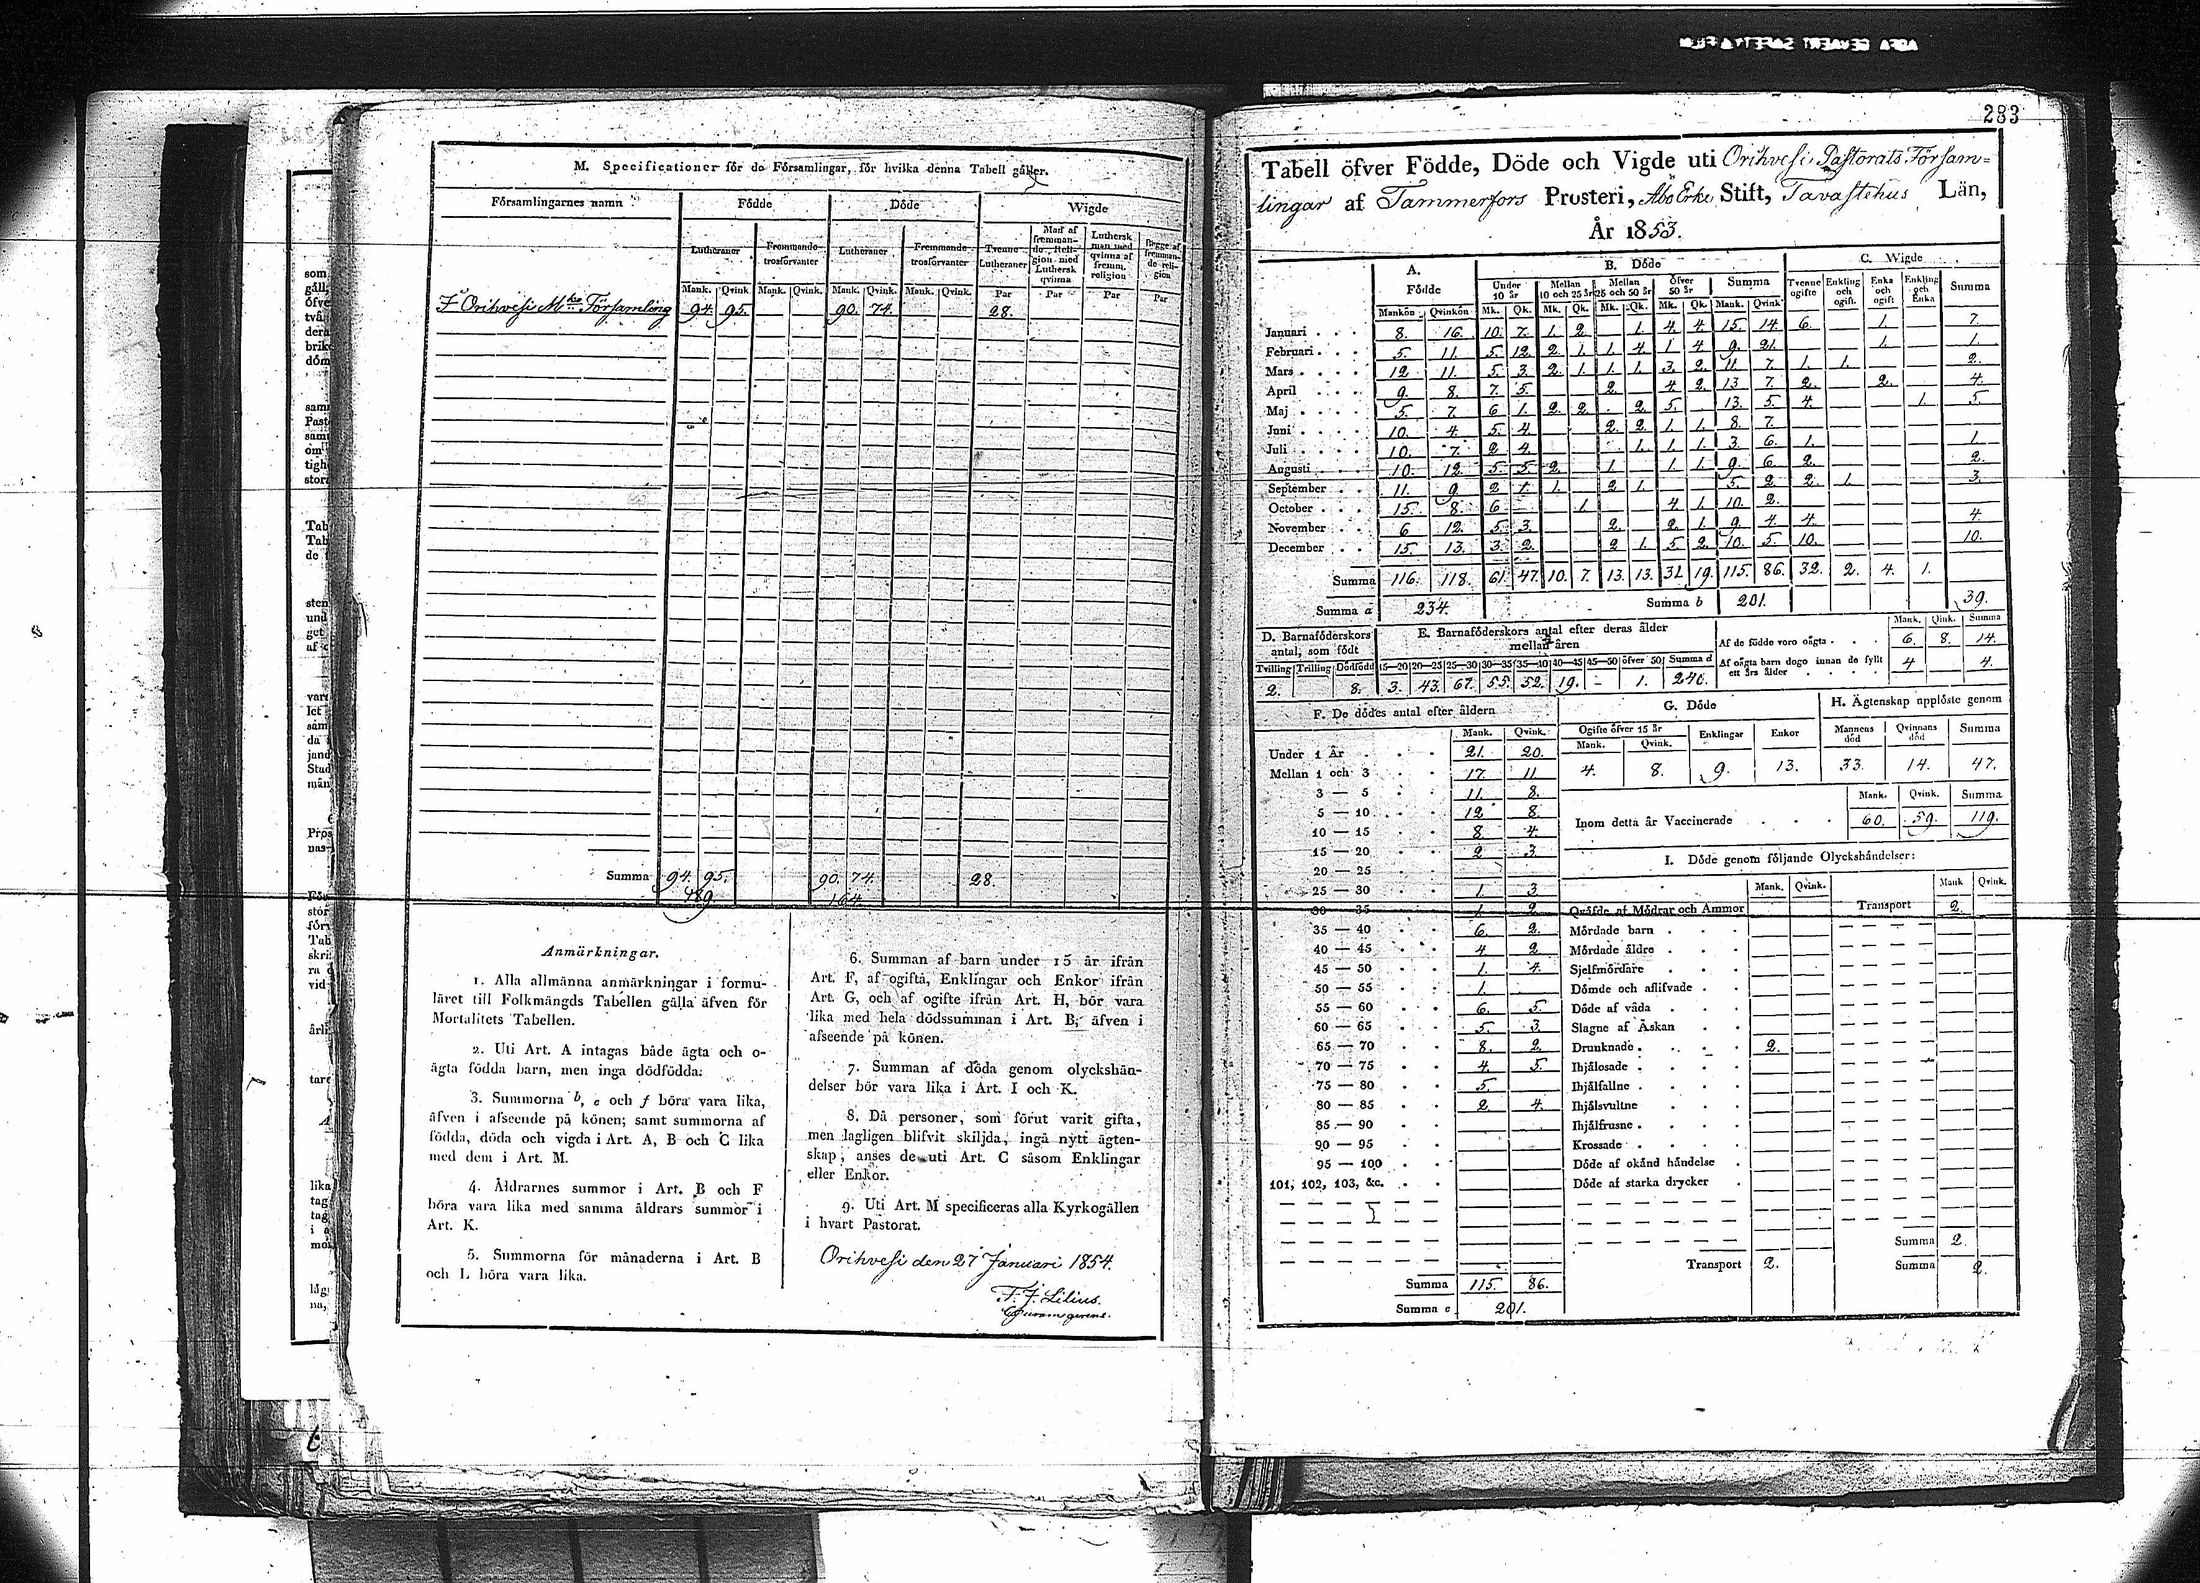 M. Specificationer för de Församlingar, för hvilka denna Tabell gäller.
Församlingarnes namn Födde Döde Wigde
Lutheraner Frommande trosförvanter Lutheraner Fremmande trosförvanter Tvenne Lutheraner Man af fremmande Religion med Luthersk qvinna Luthersk man med qvinna af fremm. religion Begge af fremmande religion
Mank. Qvink. Mank. Qvink. Mank. Qvink. Mank. Qvink. Par Par Par Par
Orihvesi Församling 94. 95. 90. 74. 28.
Summa 94. 95. 90. 74. 28.
189. 164.
Anmärkningar.
1. Alla allmänna anmärkningar i formu-
läret till Folkmängds Tabellen gälla äfven för
Mortalitets Tabellen.
2. Uti Art. A intagas både ägta och o-
ägta födda barn, men inga dödfödda.
3. Summorna b, c och f böra vara lika,
äfven i afseende på könen; samt summorna af
födda, döda och vigda i Art. A, B och C lika
med dem i Art. M.
4. Åldrarnes summor i Art. B och F
böra vara lika med samma åldrars summor i
Art. K.
5. Summorna för månaderna i Art. B
och L böra vara lika.
6. Summan af barn under 15 år ifrån
Art. F, af ogifta, Enklingar och Enkor ifrån
Art. G, och af ogifte ifrån Art. H, bör vara
lika med hela dödssumman i Art. B, äfven i
afseende på könen.
7. Summan af döda genom olyckshän-
delser bör vara lika i Art. I och K.
8. Då personer, som förut varit gifta,
men lagligen blifvit skiljda, ingå nytt ägten-
skap, anses de uti Art. C såsom Enklingar
eller Enkor.
9. Uti Art. M specificeras alla Kyrkogällen
i hvart Pastorat.
Orihvesi den 27 Januari 1854.
F. J. Lilius.
283
Tabell öfver Födde, Döde och Vigde uti Orihvesi Pastorats Församlin=
lingar af Tammerfors Prosteri, Åbo Erke Stift, Tavastehus Län,
År 1853.
A. Födde B. Döde C. Wigde
Under 10 år Mellan 10 och 25 år Mellan 25 och 50 år Öfver 50 år Summa Tvenne ogifte Enkling och ogift. Enka och ogift Enkling och Enka Summa
Mankön Qvinkön Mk. Qk. Mk. Qk. Mk. Qk. Mk. Qk. Mank. Qvink
Januari 8. 16. 10. 7. 1. 2. 1. 4. 4. 15. 14. 6. 1. 7.
Februari 5. 11. 5. 12. 2. 1. 1. 4. 1. 4. 9. 21. 1. 1.
Mars 12. 11. 5. 3. 2. 1. 1. 1. 3. 2. 11. 7. 1. 1. 2.
April 9. 8. 7. 5. 2. 4. 2. 13. 7. 2. 2. 4.
Maj 5. 7. 6. 1. 2. 2. 2. 5. 13. 5. 4. 1. 5.
Juni 10. 4. 5. 4. 2. 2. 1. 1. 8. 7.
Juli 10. 7. 2. 4. 1. 1. 1. 3. 6. 1. 1.
Augusti 10. 12. 5. 5. 2. 1. 1. 1. 9. 6. 2. 2.
September 11. 9. 2. 1. 1. 2. 1. 5. 2. 2. 1. 3.
October 15. 8. 6. 1. 4. 1. 10. 2.
November 6. 12. 5. 3. 2. 2. 1. 9. 4. 4. 4.
December 15. 13. 3. 2. 2. 1. 5. 2. 10. 5. 10. 10.
Summa 116. 118. 61. 47. 10. 7. 13. 13. 31. 19. 115. 86. 32. 2. 4. 1.
Summa a 234. Summa b 201. 39.
D. Barnaföderskors antal, som födt
Tvilling Trilling Dödfödd
2. 8.
E. Barnaföderskors antal efter deras ålder mellan åren
15—20 20—25 25—30 30—35 35—40 40—45 45—50 öfver 50 Summa d
3. 43. 67. 55. 52. 19. - 1. 240.
Mank. Qink. Summa
Af de födde voro oägta 6. 8. 14.
Af oägta barn dogo innan de fyllt ett års ålder 4 4.
F. De dödes antal efter åldern
Mank. Qvink.
Under 1 År 21. 20.
Mellan 1 och 3 17. 11
3 — 5 11. 8.
5 — 10 12 8.
10 — 15 8. 4.
15 — 20 2 3.
20 — 25
25 — 30 1. 3.
30 — 35 1. 2.
35 — 40 6. 2.
40 — 45 4 2.
45 — 50 1. 4.
50 — 55 1.
55 — 60 6. 5.
60 — 65 5. 3.
65 — 70 8. 2.
70 — 75 4. 5.
75 — 80 5.
80 — 85 2. 4.
85 — 90
90 — 95
95 — 100
101, 102, 103, &c.
Summa 115. 86.
Summa c 201.
G. Döde
Ogifte öfver 15 år Enklingar Enkor
Mank. Qvink.
4. 8. 9. 13.
H. Ägtenskap upplöste genom
Mannens död Qvinnans död Summa
33. 14. 47.
Mank. Qvink. Summa
Inom detta år Vaccinerade 60. 59. 119.
I. Döde genom följande Olyckshändelser:
Mank. Qvink. Mank Qvink.
Qväfde af Mödrar och Ammor Transport 2.
Mördade barn
Mördade äldre
Sjelfmördare
Dömde och aflifvade
Döde af våda
Slagne af Åskan
Drunknade 2.
Ihjälosade
Ihjälfallne
Ihjälsvultne
Ihjälfrusne
Krossade
Döde af okänd händelse
Döde af starka drycker
Summa 2.
Transport 2. Summa 2.